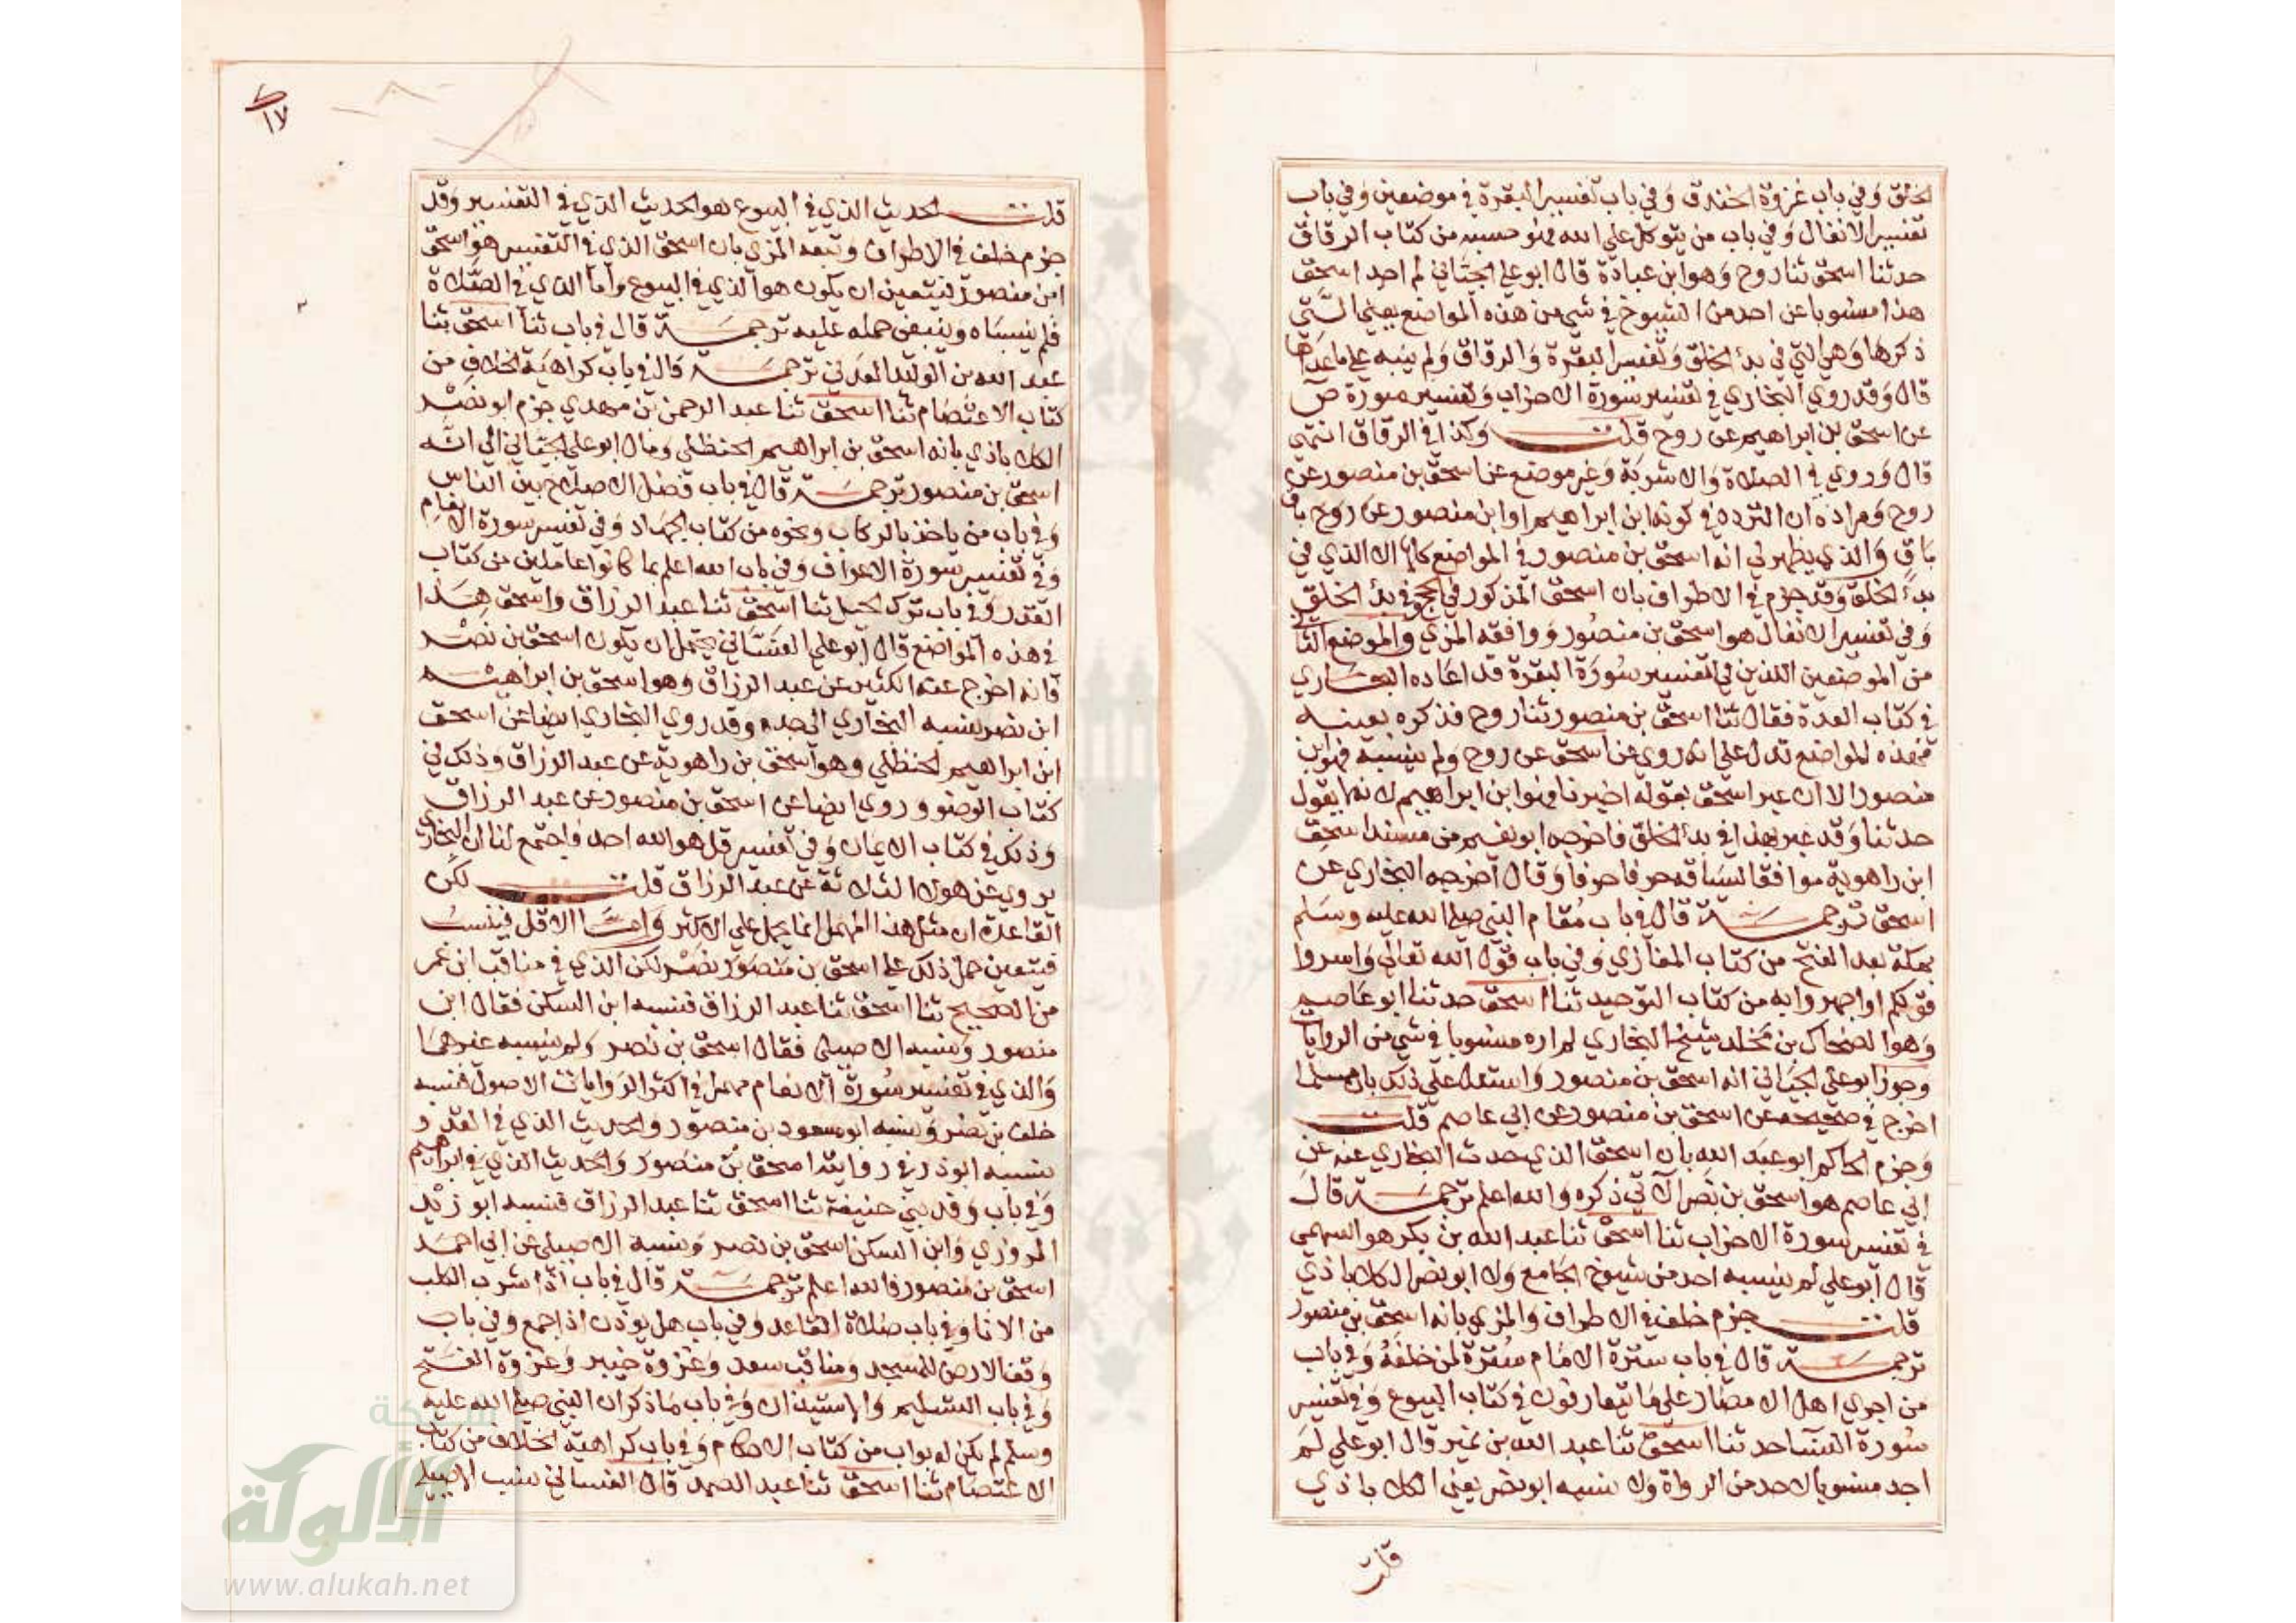 الخلق وفي باب غزوة الخندق وفي باب تفسير البقرة في موضعين وفي باب
تفسير الانفال وفي باب من يتوكل على الله فهو حسبه من كتاب الرقاق
حدثنا اسحق ثنا روح وهو ابن عبادة قال ابو علي الجياني لم اجد اسحق
هذا منسوبا عن احد من الشيوخ في شي من هذه المواضع يعني التي
ذكرها وهي التي في بدء الخلق وتفسير البقرة والرقاق ولم ينبه على ما عداها
قال وقد روي البخاري في تفسير سورة الاحزاب وتفسير سورة ص
عن اسحق بن ابراهيم عن روح قلت وكذا في الرقاق انتهى
قال وروي في الصلاة والاشربة وغير موضع عن اسحق بن منصور عن
روح ومراده ان التردد في كونه ابن ابراهيم او ابن منصور عن روح باق
باق والذي يظهر لي انه اسحق بن منصور في المواضع كلها الا الذي في
بدء الخلق وقد جزم في الاطراف بان اسحق المذكور في الحج وفي بدء الخلق
وفي تفسير الانفال هو اسحق بن منصور ووافقه المزي والموضع الثاني
من الموضعين اللذين في تفسير سورة البقرة قد اعاده البخاري
في كتاب العدة فقال ثنا اسحق بن منصور ثنا روح فذكره بعينه
فهذه المواضع تدل على انه روي عن اسحق عن روح ولم ينسبه فهو ابن
منصور الا ان عبر اسحق بقوله اخبرنا فهو ابن ابراهيم لانه لا يقول
حدثنا وقد عبر بهذا في بدء الخلق فاخرجه ابو نعيم من مسند اسحق
ابن راهوية موافقا لسياقه حرفا حرفا وقال اخرجه البخاري عن
اسحق ترجمة قال في باب مقام النبي صلى الله عليه وسلم
بمكة بعد الفتح من كتاب المغازي وفي باب قول الله تعالى واسروا
قولكم او اجهروا به من كتاب التوحيد ثنا اسحق حدثنا ابو عاصم
وهو الضحاك بن مخلد شيخ البخاري لم اره منسوبا في شي من الروايات
وجوز ابو علي الجياني انه اسحق بن منصور واستدل على ذلك بان مسلما
اخرج في صحيحه عن اسحق بن منصور عن ابي عاصم قلت
وجزم الحاكم ابو عبد الله بان اسحق الذي حدث البخاري عنه عن
ابي عاصم هو اسحق بن نصر الاتي ذكره والله اعلم ترجمة قال
في تفسير سورة الاحزاب ثنا اسحق ثنا عبد الله بن بكر هو السهمي
قال ابو علي لم ينسبه احد من شيوخ الجامع ولا ابو نصر الكلاباذي
قلت جزم خلف في الاطراف والمزي بانه اسحق بن منصور
ترجمة قال في باب سترة الامام سترة لمن خلفه وفي باب
من اجري اهل الامصار على ما يتعارفون في كتاب البيوع وفي تفسير
سورة النسا حدثنا اسحق ثنا عبد الله بن نمير قال ابو علي لم
اجد منسوبا لاحد من الرواة ولا نسبه ابو نصر يعني الكلاباذي
قلت
١٧
قلت الحديث الذي في البيوع هو الحديث الذي في التفسير وقد
جزم خلف في الاطراف وتبعه المزي بان اسحق الذي في التفسير هو اسحق
ابن منصور فتعين ان يكون هو الذي في البيوع واما الذي في الصلاة
فلم ينسباه وينبغي حمله عليه ترجمة قال في باب ثنا اسحق ثنا
عبد الله بن الوليد العدني ترجمة قال في باب كراهية الخلاف من
كتاب الاعتصام ثنا اسحق ثنا عبد الرحمن بن مهدي جزم ابو نصر
الكلاباذي بانه اسحق بن ابراهيم الحنظلي ومال ابو علي الجياني الى انه
اسحق بن منصور ترجمة قال في باب فضل الاصلاح بين الناس
وفي باب من ياخذ بالركاب ونحوه من كتاب الجهاد وفي تفسير سورة الانعام
وفي تفسير سورة الاعراف وفي باب الله اعلم بما كانوا عاملين من كتاب
القدر وفي باب ترك الحيل ثنا اسحق ثنا عبد الرزاق واسحق هذا
في هذه المواضع قال ابو علي الغساني يحتمل ان يكون اسحق بن نصر
فانه اخرج عنه الكثير عن عبد الرزاق وهو اسحق بن ابراهيم
ابن نصر ينسبه البخاري الى جده وقد روي البخاري ايضا عن اسحق
ابن ابراهيم الحنظلي وهو اسحق بن راهوية عن عبد الرزاق وذلك في
كتاب الوضو وروي ايضا عن اسحق بن منصور عن عبد الرزاق
وذلك في كتاب الايمان وفي تفسير قل هو الله احد فاجتمع لنا ان البخاري
يروي عن هولا الثلاثة عن عبد الرزاق قلت لكن
القاعدة ان مثل هذا المهمل انما يحمل على الاكثر واما الاقل فينسب
فيتعين حمل ذلك على اسحق بن منصور نصر لكن الذي في مناقب ابن عمر
من الصحيح ثنا اسحق ثنا عبد الرزاق فنسبه ابن السكن فقال ابن
منصور ونسبه الاصيلي فقال اسحق بن نصر ولم ينسبه غيرهما
والذي في تفسير سورة الانعام مهمل في اكثر الروايات الاصول فنسبه
خلف بن نصر ونسبه ابو مسعود بن منصور والحديث الذي في القدر
نسبه ابو ذر في روايته اسحق بن منصور والحديث الذي في ابراهيم
وفي باب وفد بني حنيفة ثنا اسحق ثنا عبد الرزاق فنسبه ابو زيد
المروزي وابن السكن اسحق بن نصر ونسبه الاصيلي عن ابي احمد
اسحق بن منصور فالله اعلم ترجمة قال في باب اذا شرب الكلب
من الانا وفي باب صلاة القاعد وفي باب هل يوذن اذا جمع وفي باب
وقف الارض للمسجد ومناقب سعد وغزوة خيبر وغزوة الفتح
وفي باب التسليم والاستيذان وفي باب ما ذكر ان النبي صلى الله عليه
وسلم لم يكن له بواب من كتاب الاحكام وفي باب كراهية الخلاف من كتاب
الاعتصام ثنا اسحق ثنا عبد الصمد قال الغساني نسب الاصيلي
شبكة
الألوكة
www.alukah.net